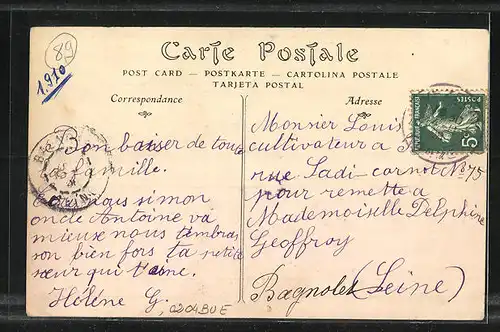 89
1910
Carte Postale
POST CARD — POSTKARTE — CARTOLINA POSTALE
TARJETA POSTAL
Correspondance
Bon baiser de toute
la famille.
simon
oncle Antoine va
mieux nous
bien fors ta petite
sœur qui t'aine.
Hélène G.
0204BUE
Adresse
POSTES
5
Monsieur Louis
cultivateur a
rue Sadi-carnot No 75
pour remettre a
Mademoiselle Delphine
Geoffroy
Bagnolet (Seine)